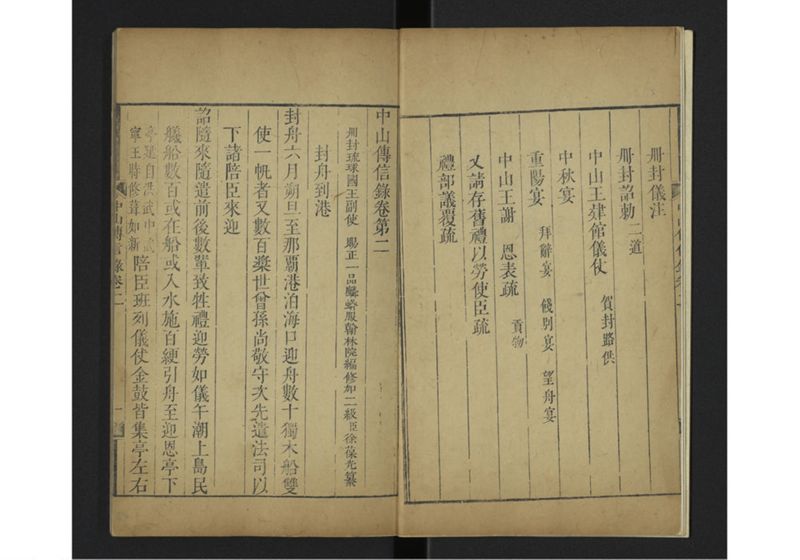 冊封儀注
冊封詔勅 二道
中山王肄館儀仗 賀封路供
中秋宴
重陽宴 拜辭宴 餞別宴 望舟宴
中山王謝 恩表疏 貢物
又請存舊禮以勞使臣疏
禮部議覆疏
中山傳信錄卷第二
冊封琉球國王副使 賜正一品麟蟒服翰林院編修加二級臣徐葆光纂
封舟到港
封舟六月朔旦至那覇港泊海口迎舟數十獨木船雙
使一帆者又數百槳世曾孫尚敬守次先遣法司以
下諸陪臣來迎
詔隨來隨遣前後數輩致牲禮迎勞如儀午潮上島民
艤船數百或在船或入水施百綆引舟至迎恩亭下
亭建自洪武中武
寧王時修葺如新 陪臣班列儀仗金鼓皆集亭左右
中山傳信錄卷二
一